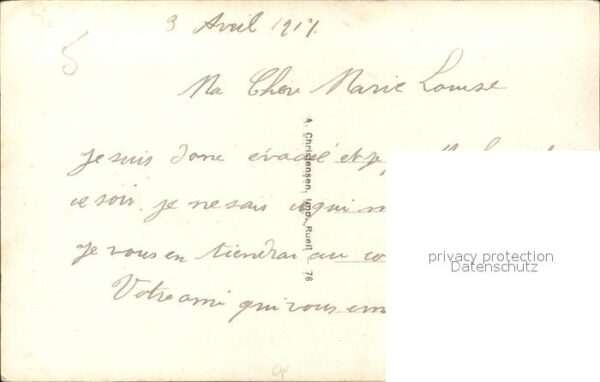 5
3 Avril 1917.
Ma Chere Marie Louise
Je suis donc évacué et je
ce soir. je ne sais
Je vous en tiendrai au co
Votre ami qui vous em
A. Christensen, Imp. Rueil 76
privacy protection
Datenschutz